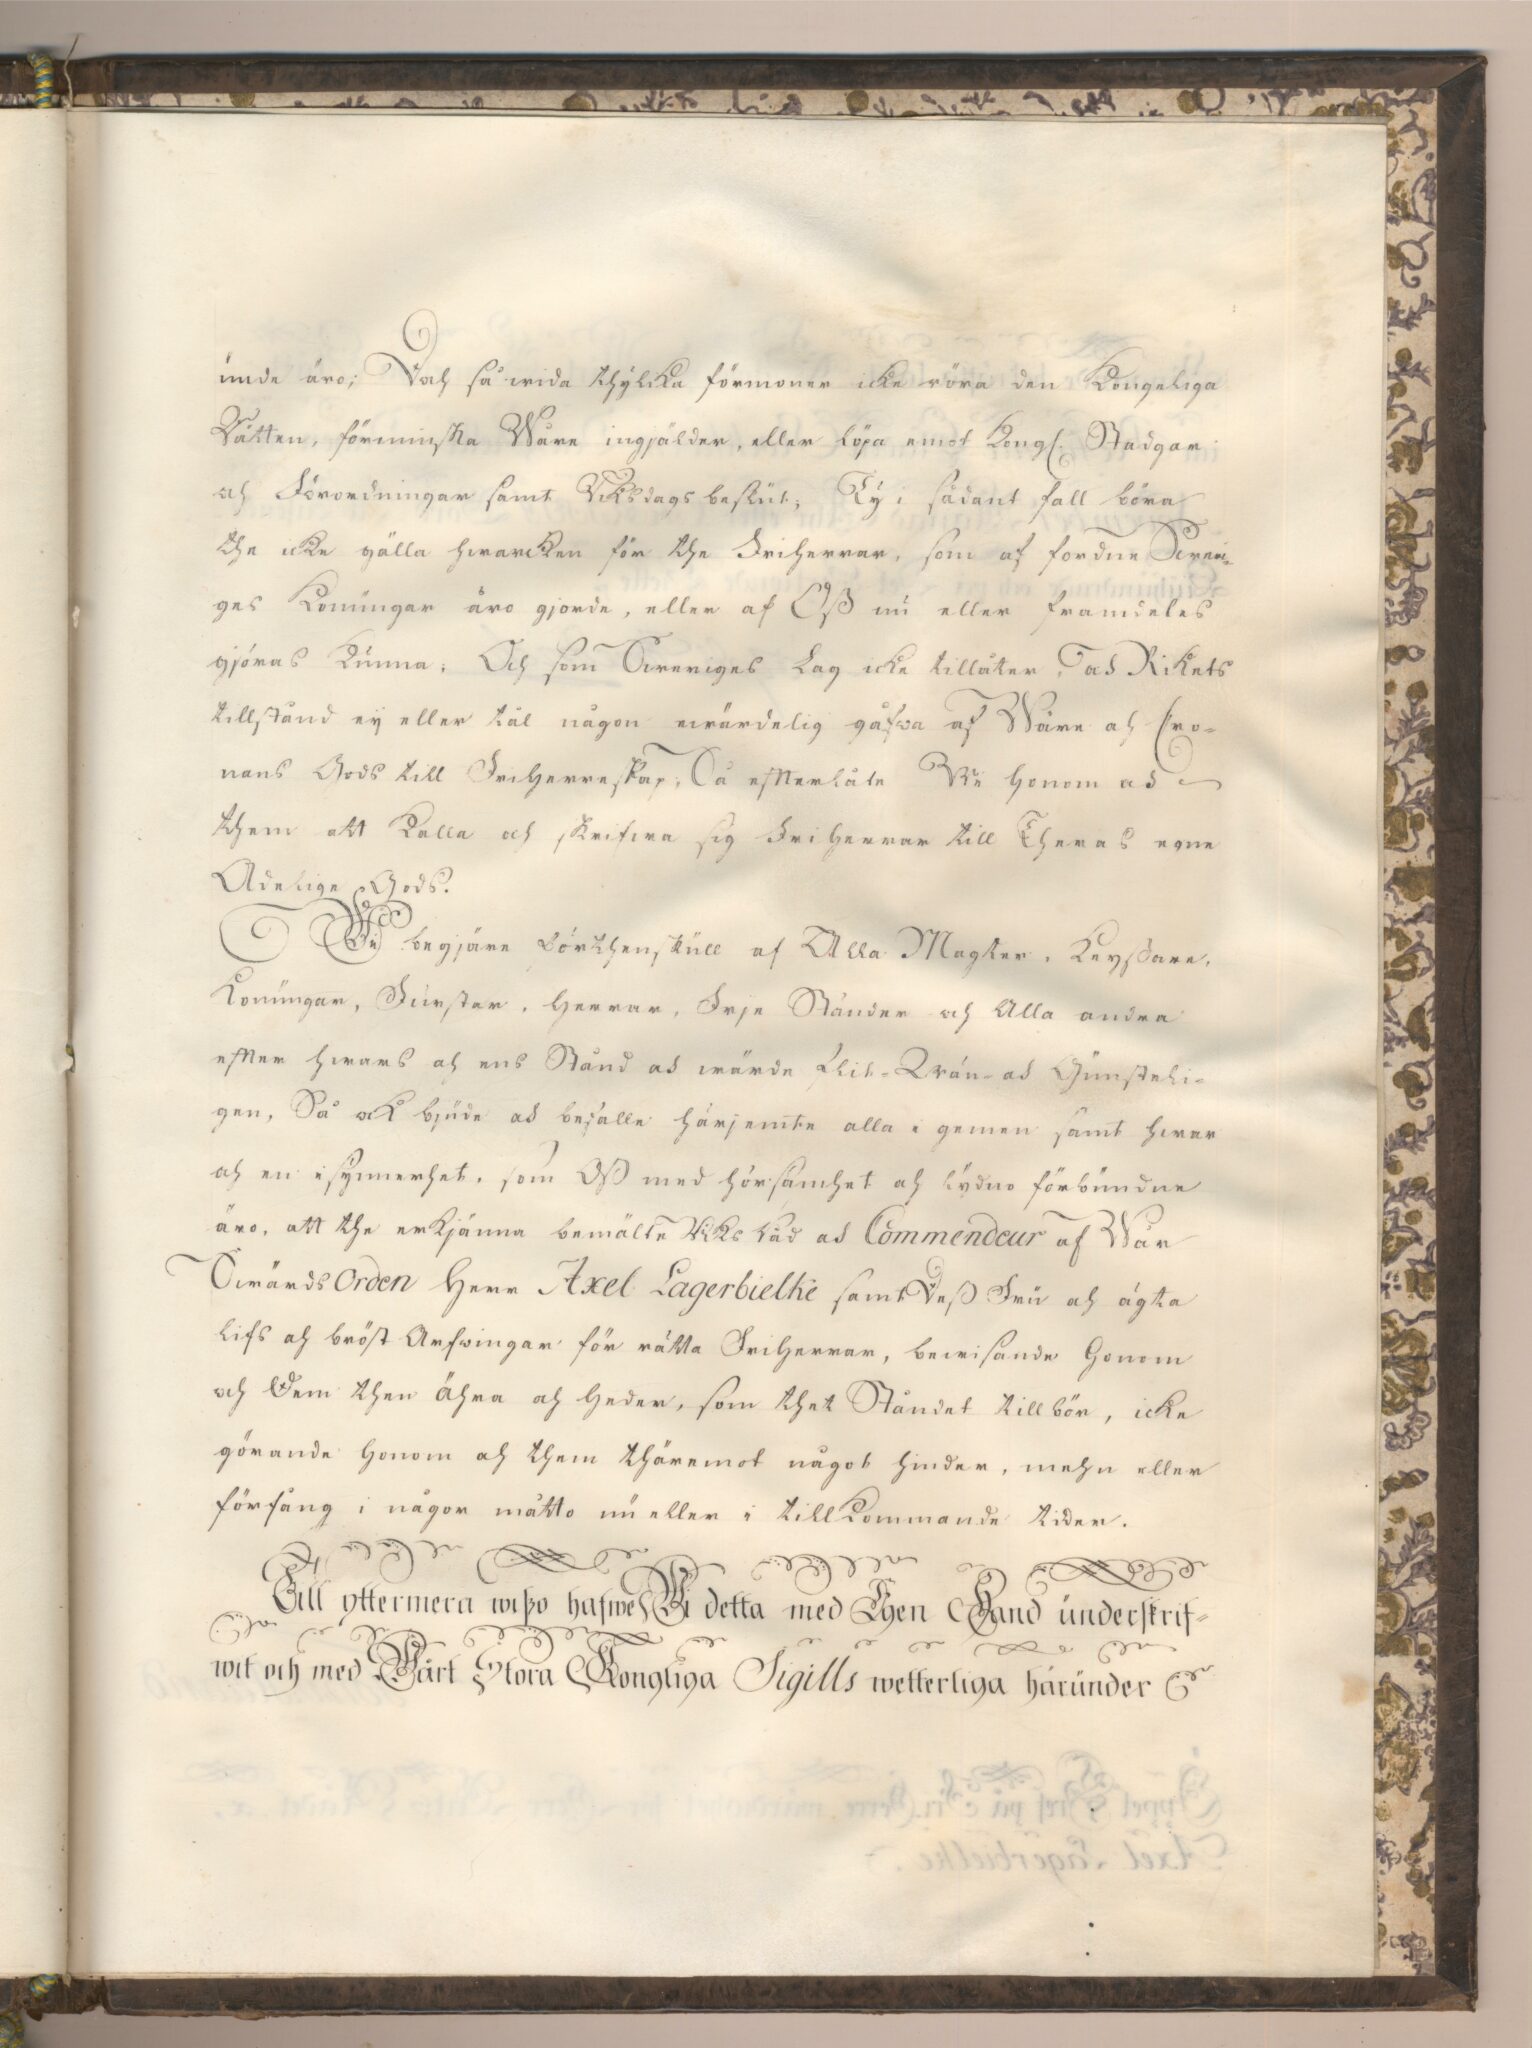 ünde äro; Doch så wida thylcka förmoner icke röra den Kongeliga
Rätten, förminska Wåre ingjälder, eller löpa emot Kongl. Stadgar
och Förordningar samt Riksdags beslut; Ty i sådant fall böra
the icke gälla hwarcken för the Friherrar, som af fordne Sweri-
ges Konüngar äro gjorde, eller af Oß nü eller framdeles
gjöras künna; Och som Sweriges Lag icke tillåter, ad Rikets
tillstånd ey eller tål någon ewärdelig gåfwa af Wåre och Cro-
nans Gods till Friherreskap; Så effterlåte Wi honom ad
them att kalla och skrifwa sig Friherrar till Theras egne
Adelige Gods.
Wi begjäre förthenskull af Alla Magter, Keyßare,
Konüngar, Fürstar, Herrar, Frje Ständer och Alla andra
effter hwars och ens Stånd ad wärde flit- Wän- ad Günsteli-
gen, Så ock bjüde ad befalle härjemte alla i gemen samt hwar
och en isynnerhet, som Oß med hörsamhet och lydno förbundne
äro, att the erkjänna bemälte Riks Råd ad Commendeur af Wår
Swärds Orden Herr Axel Lagerbielke samt Deß Frü och ägta
lifs och bröst Arfwingar för rätta Friherrar, bewisande Honom
och Dem then Ähra och heder, som thet Ståndet tillbör, icke
görande honom och them thäremot något hinder, mehn eller
förfång i någor måtto nü eller i tillkommande tider.
Till yttermera wißo hafwe Wi detta med Egen Hand ünderskrif-
wit och med Wårt Stora Kongliga Sigills wetterliga häründer